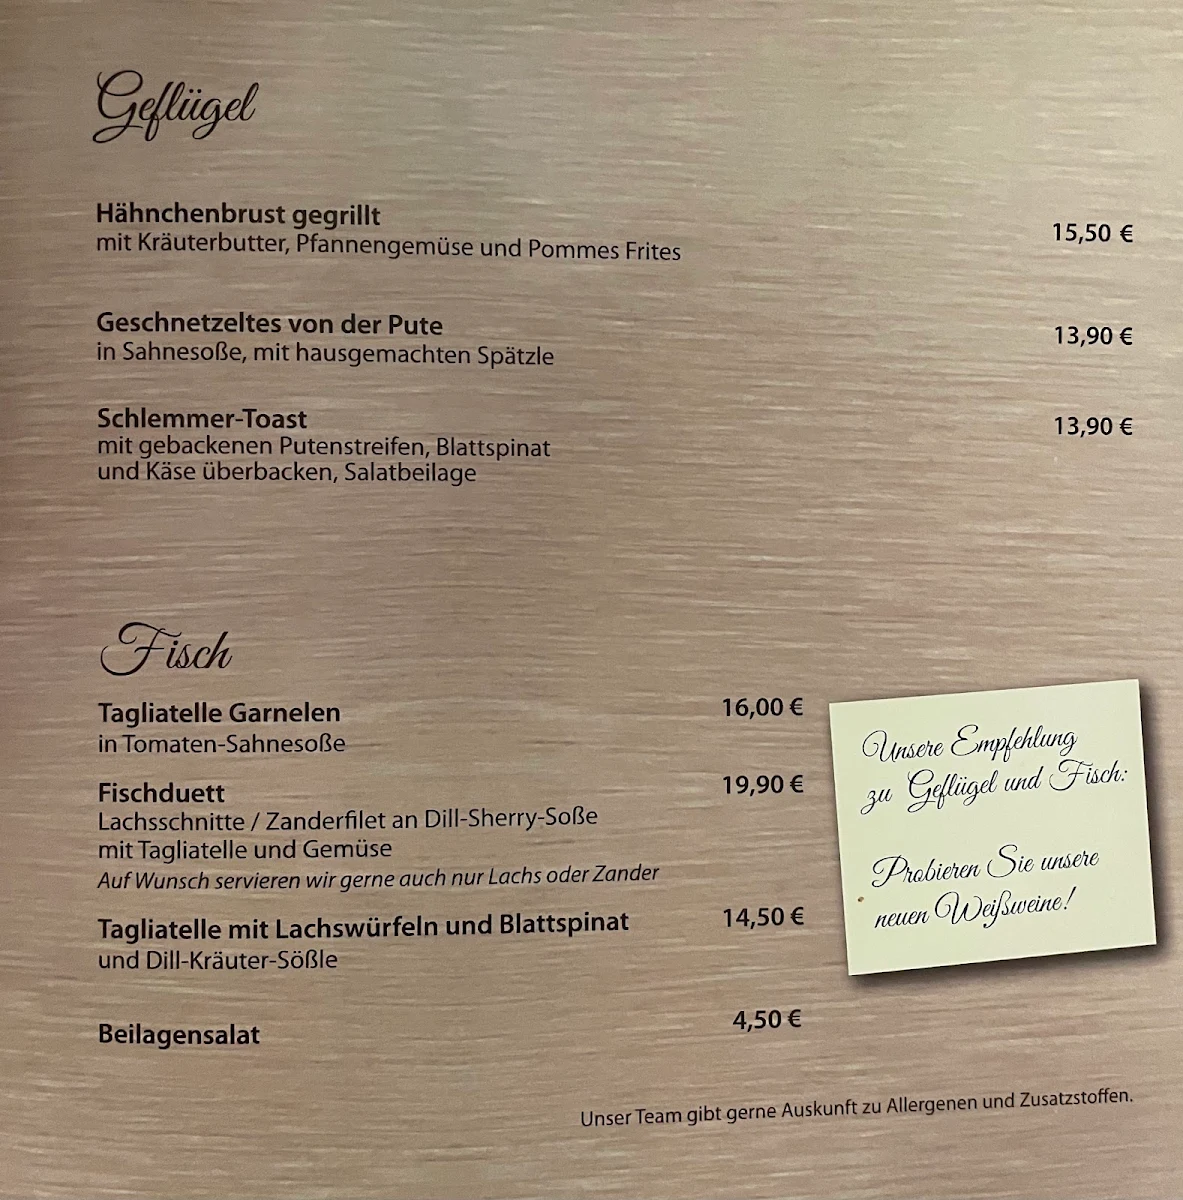 Geflügel
Hähnchenbrust gegrillt
mit Kräuterbutter, Pfannengemüse und Pommes Frites
15,50 €
Geschnetzeltes von der Pute
in Sahnesoße, mit hausgemachten Spätzle
13,90 €
Schlemmer-Toast
mit gebackenen Putenstreifen, Blattspinat
und Käse überbacken, Salatbeilage
13,90 €
Fisch
Tagliatelle Garnelen
in Tomaten-Sahnesoße
16,00 €
Fischduett
Lachsschnitte / Zanderfilet an Dill-Sherry-Soße
mit Tagliatelle und Gemüse
Auf Wunsch servieren wir gerne auch nur Lachs oder Zander
19,90 €
Tagliatelle mit Lachswürfeln und Blattspinat
und Dill-Kräuter-Sößle
14,50 €
Beilagensalat
4,50 €
Unsere Empfehlung
zu Geflügel und Fisch:
Probieren Sie unsere
neuen Weißweine!
Unser Team gibt gerne Auskunft zu Allergenen und Zusatzstoffen.